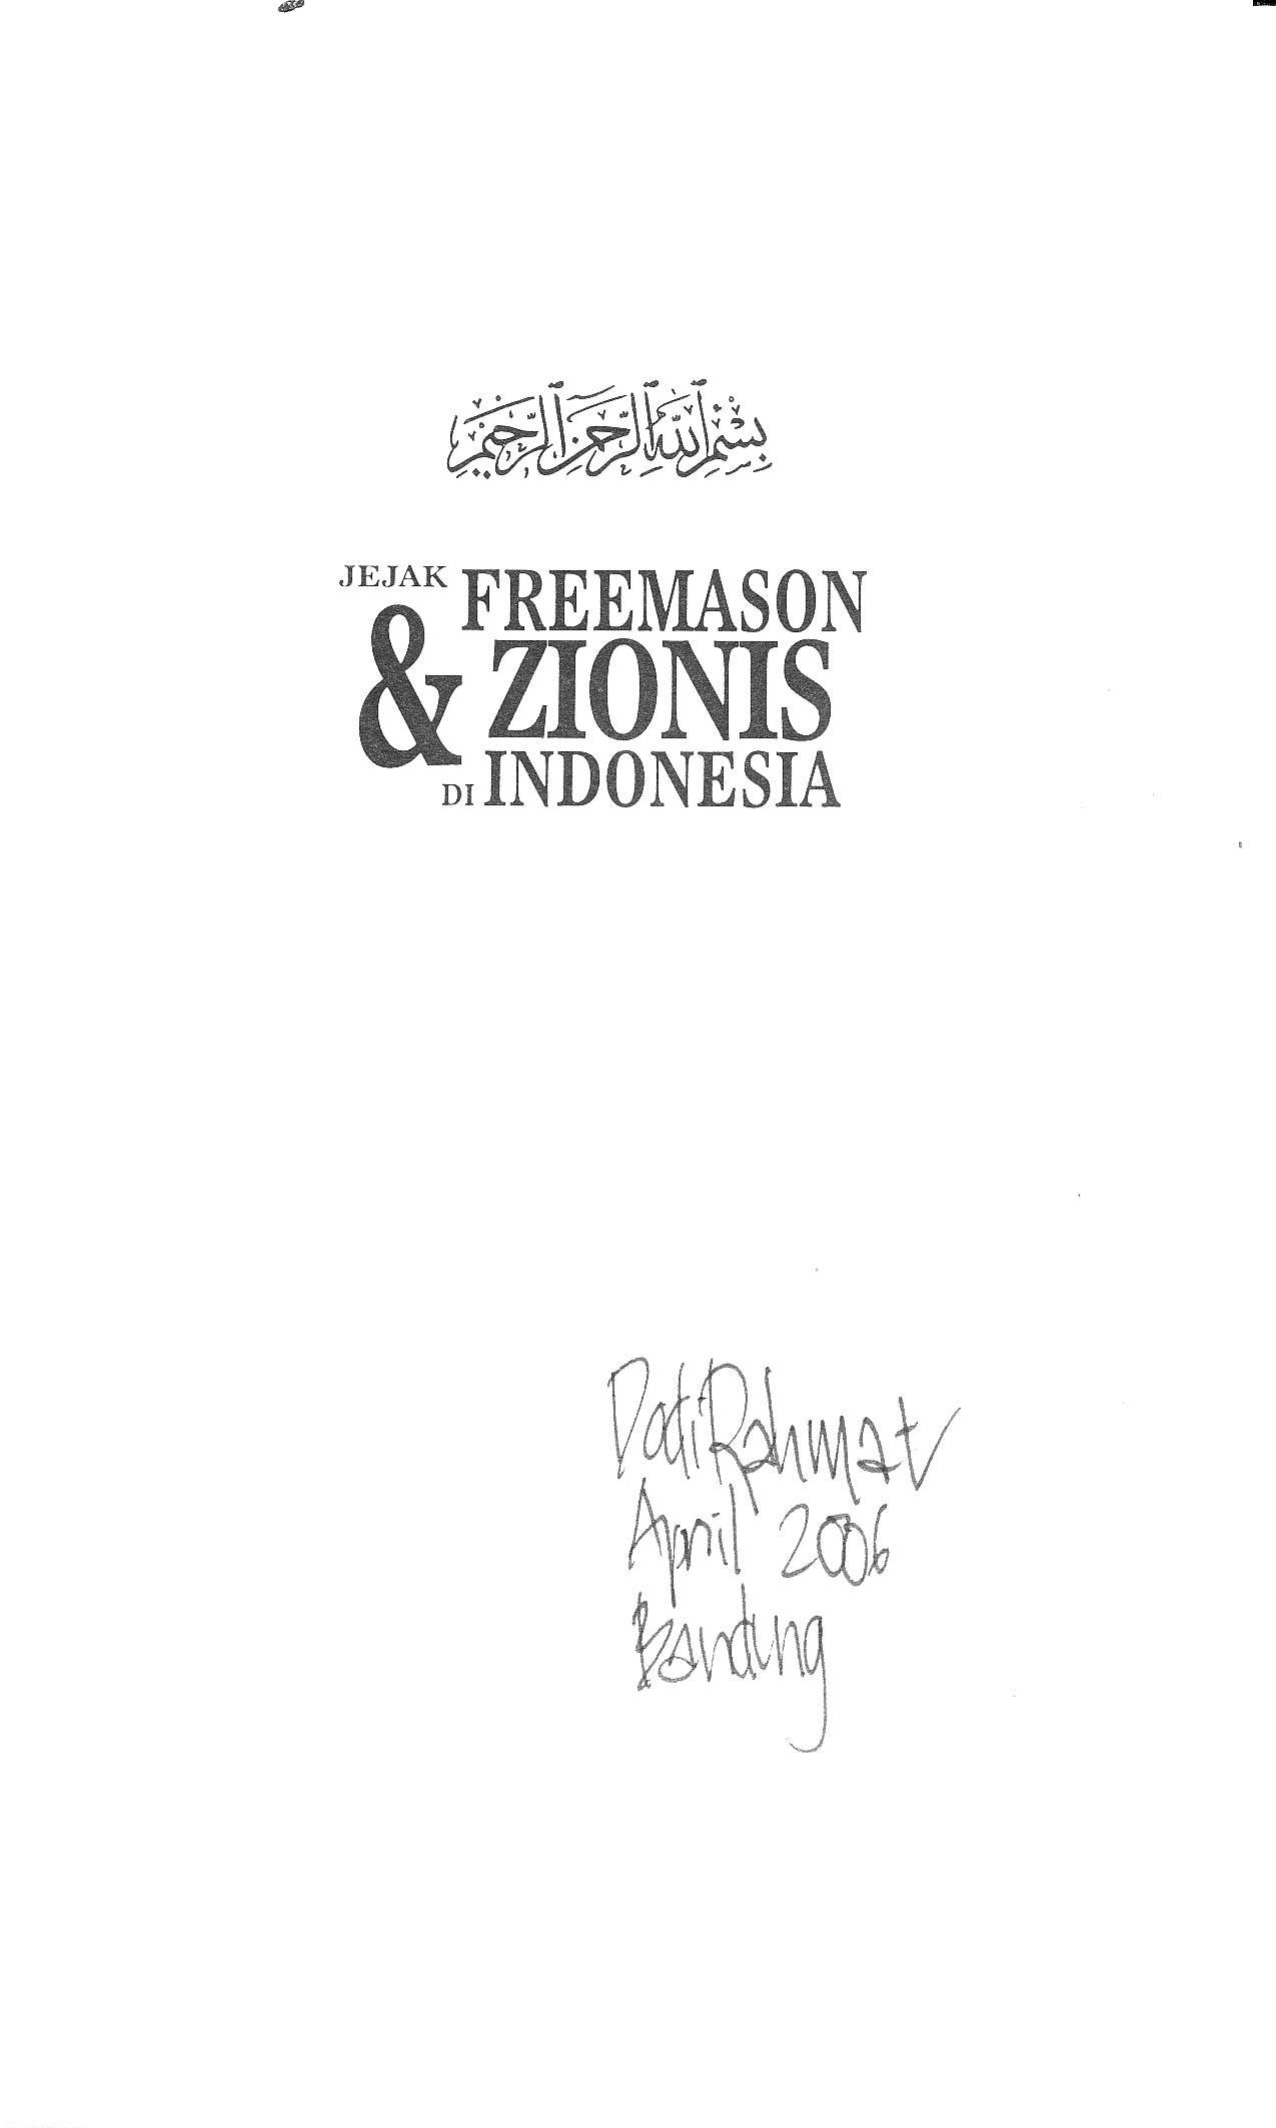 بِسْمِ ٱللَّهِ ٱلرَّحْمَٰنِ ٱلرَّحِيمِ
JEJAK FREEMASON
& ZIONIS
DI INDONESIA
Dodi Rahmat
April 2006
Bandung